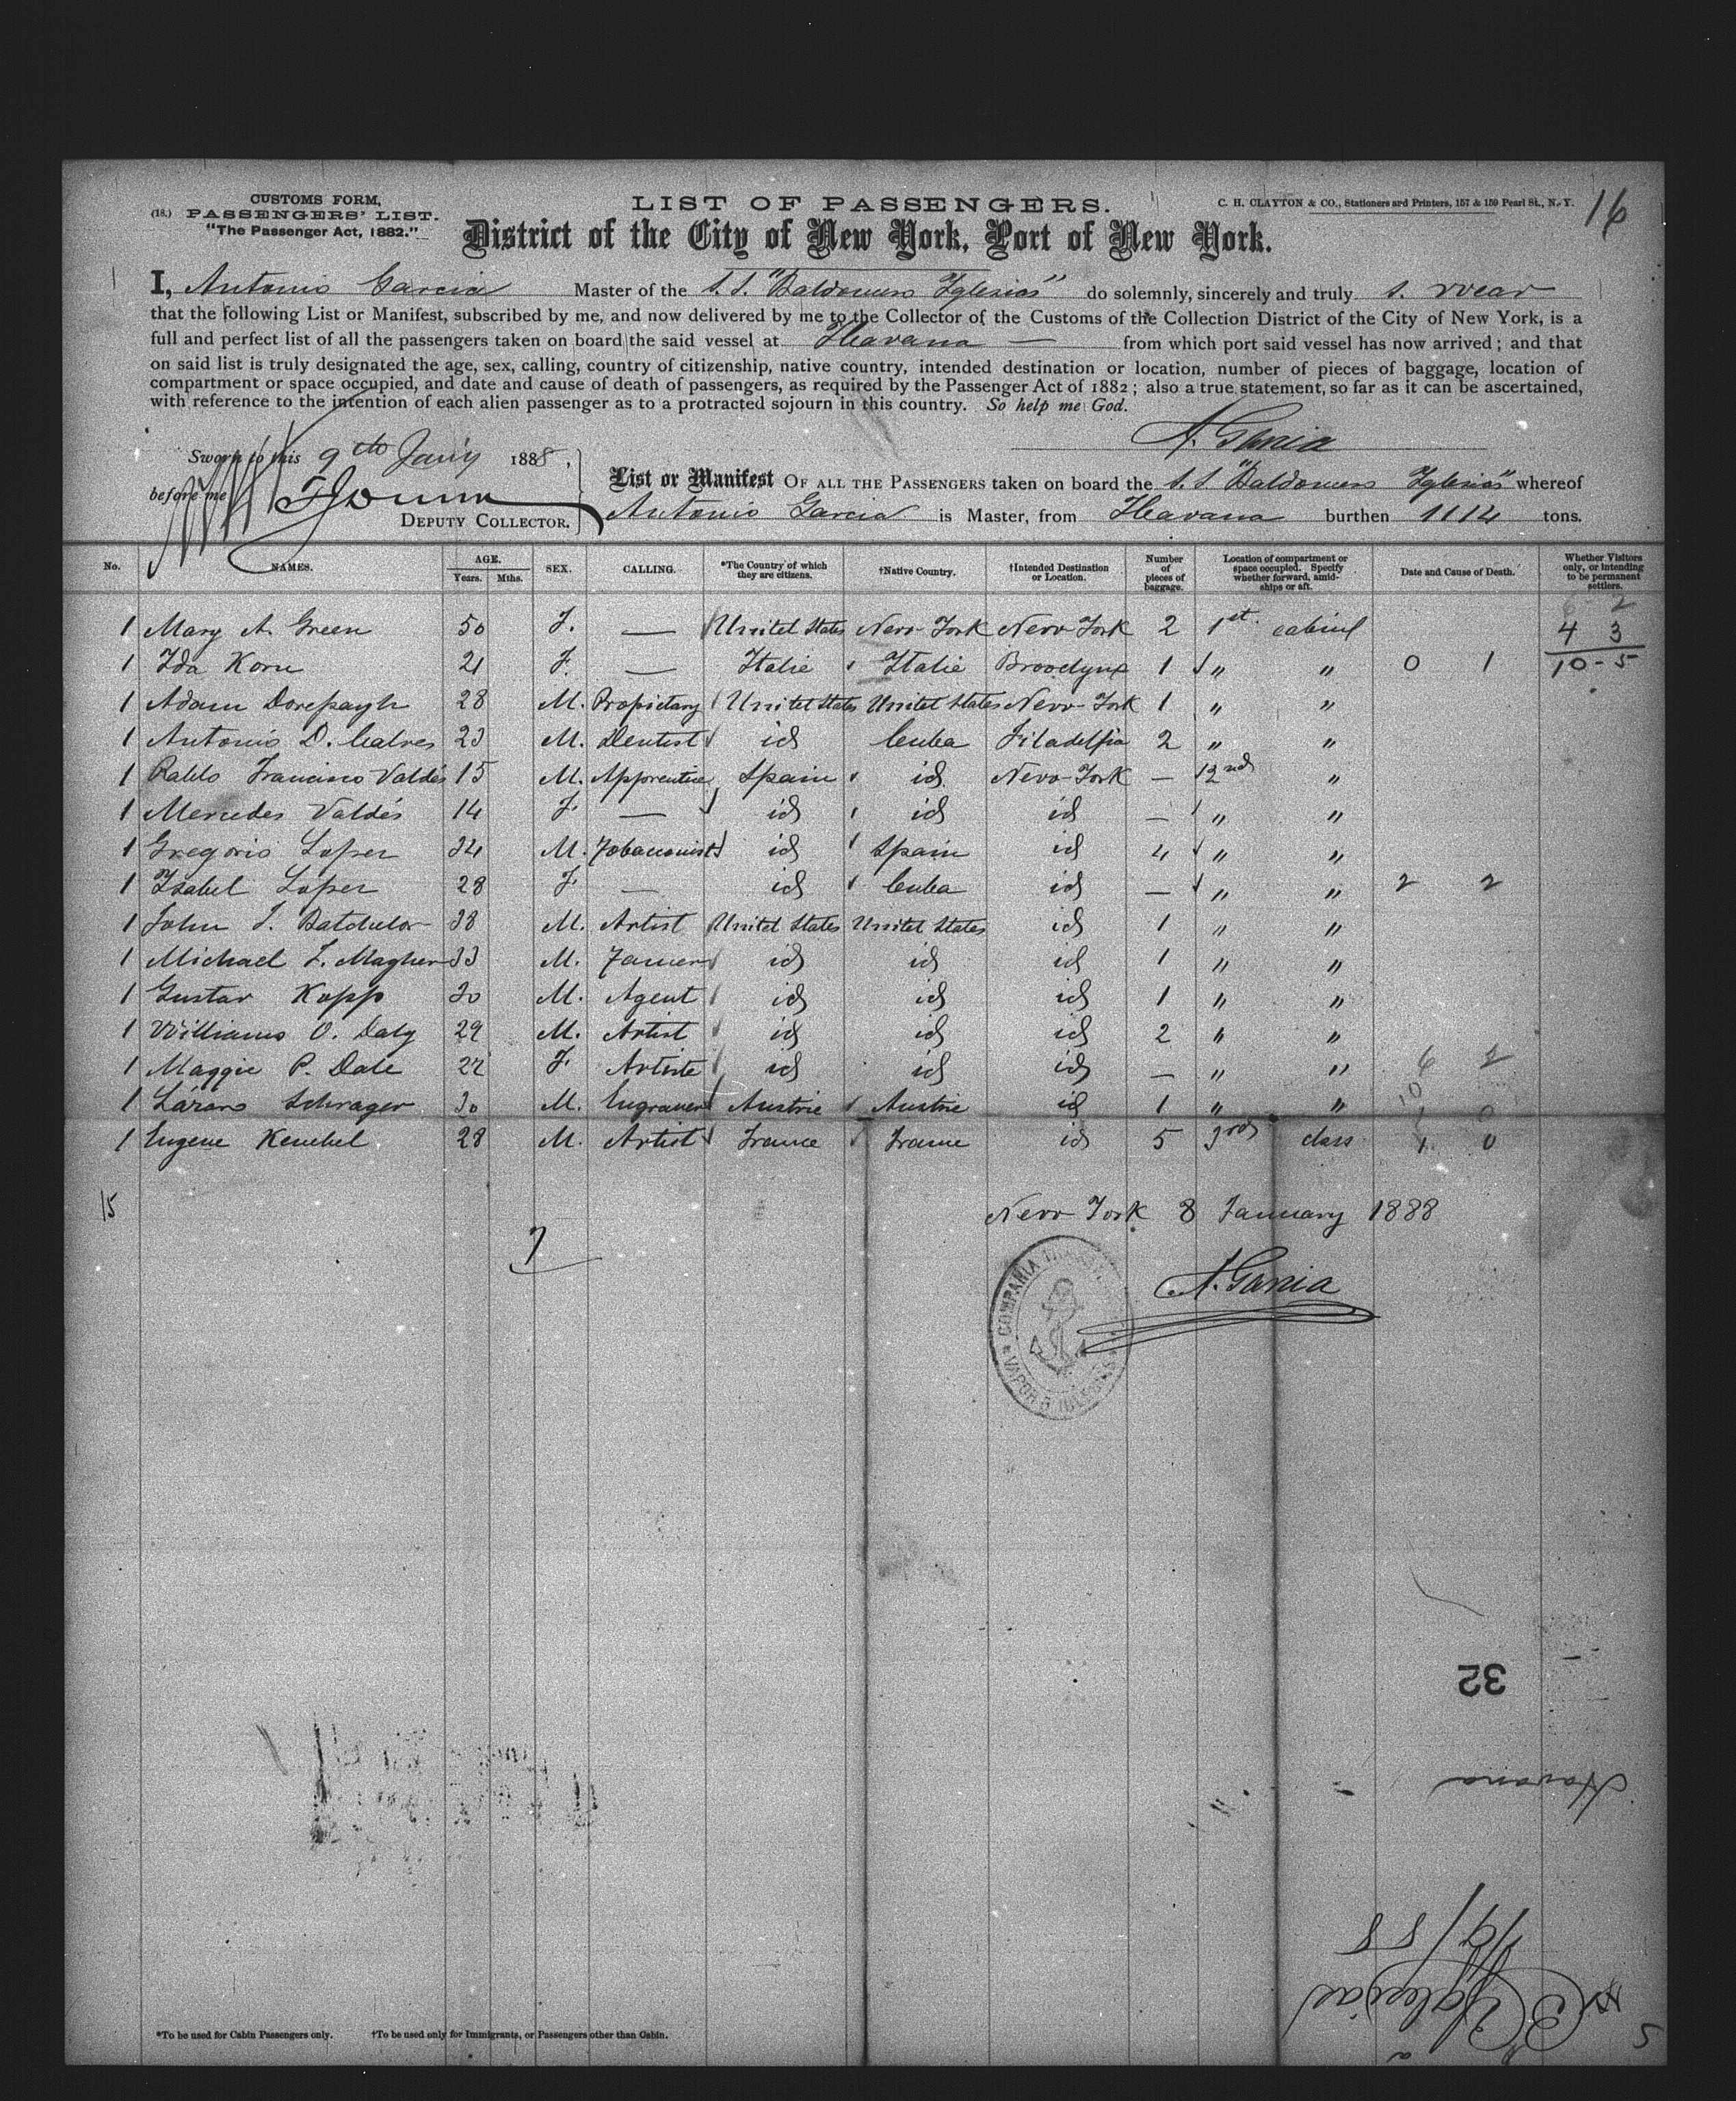 CUSTOMS FORM,
(18.) PASSENGERS' LIST.
"The Passenger Act, 1882."
LIST OF PASSENGERS.
C. H. CLAYTON & CO., Stationers and Printers, 157 & 159 Pearl St., N. Y.
16
District of the City of New York, Port of New York.
I, Antonio Garcia Master of the S.S. "Baldomero Yglesias" do solemnly, sincerely and truly swear
that the following List or Manifest, subscribed by me, and now delivered by me to the Collector of the Customs of the Collection District of the City of New York, is a
full and perfect list of all the passengers taken on board the said vessel at Havana — from which port said vessel has now arrived; and that
on said list is truly designated the age, sex, calling, country of citizenship, native country, intended destination or location, number of pieces of baggage, location of
compartment or space occupied, and date and cause of death of passengers, as required by the Passenger Act of 1882; also a true statement, so far as it can be ascertained,
with reference to the intention of each alien passenger as to a protracted sojourn in this country. So help me God.
A. Garcia
Sworn to this 9th Jan'y 1888,
before me
DEPUTY COLLECTOR.
List or Manifest OF ALL THE PASSENGERS taken on board the S.S. "Baldomero Yglesias" whereof
Antonio Garcia is Master, from Havana burthen 1114 tons.
No. NAMES. AGE. Years. Mths. SEX. CALLING. *The Country of which they are citizens. †Native Country. †Intended Destination or Location. Number of pieces of baggage. Location of compartment or space occupied. Specify whether forward, amidships or aft. Date and Cause of Death. Whether Visitors only, or intending to be permanent settlers.
6 2
1 Mary A. Green 50 F. — Unitet States New York New York 2 1st cabin 4 3
1 Ida Korn 21 F. — Italie Italie Brooclyn 1 " " 0 1 10-5
1 Adam Dorepayh 28 M. Propietary Unitet States Unitet States New-York 1 " "
1 Antonio D. Calves 23 M. Dentist id Cuba Filadelfia 2 " "
1 Pablo Francisco Valdés 15 M. Apprentice Spain id New-York — 2nd "
1 Mercedes Valdés 14 F. — id id id — " "
1 Gregorio Loper 34 M. Tobacconist id Spain id 4 " "
1 Isabel Loper 28 F. — id Cuba id — " " 2 2
1 John T. Batchelor 38 M. Artist Unitet States Unitet States id 1 " "
1 Michael L. Magher 33 M. id id id 1 " "
1 Gustav Kopp 30 M. Agent id id id 1 " "
1 Williams O. Daly 29 M. Artist id id id 2 " "
1 Maggie P. Dale 22 F. Artiste id id id — " " 6 2
1 Lázaro Schrager 30 M. Engraver Austrie Austrie id 1 " "
1 Eugene Kenebel 28 M. Artist France France id 5 3rd class 1 0
15
New York 8 January 1888
7
A. Garcia
COMPAÑIA
VAPOR B. IGLESIAS
32
Havana
1/9/88
B Yglesias
5
*To be used for Cabin Passengers only. †To be used only for Immigrants, or Passengers other than Cabin.